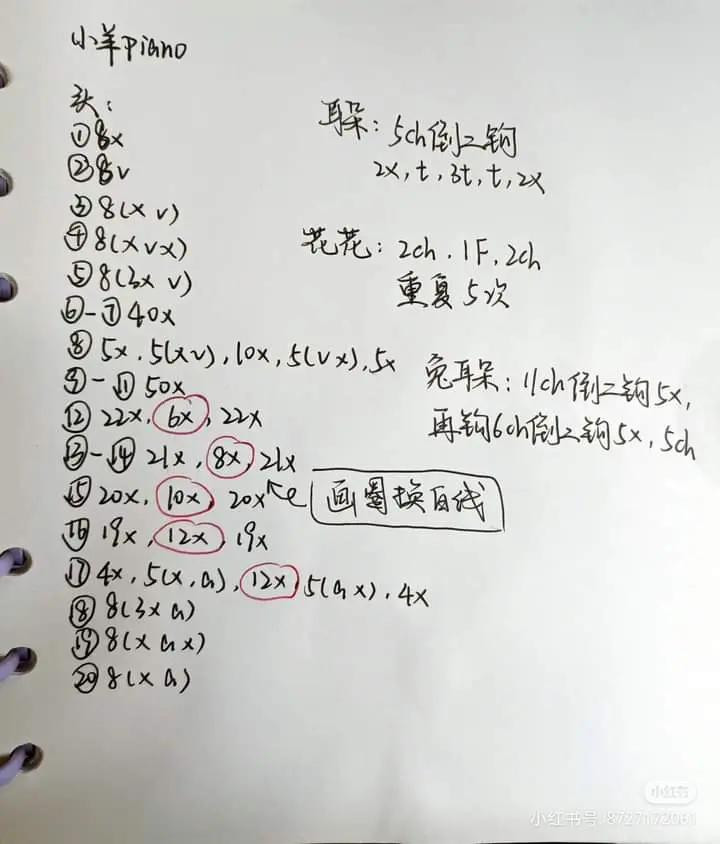 小羊Piano
头：
①8x
②8v
③8(x v)
④8(xvx)
⑤8(3x v)
⑥-⑦40x
⑧5x，5(xv)，10x，5(vx)，5x
⑨-⑪50x
⑫22x，6x，22x
⑬-⑭21x，8x，21x
⑮20x，10x，20x
画圈换白线
⑯19x，12x，19x
⑰4x，5(x，A)，12x，5(Ax)，4x
⑱8(3xA)
⑲8(xAx)
⑳8(xA)
耳朵：5ch倒二钩
2x，t，3t，t，2x
花花：2ch，1F，2ch
重复5次
兔耳朵：11ch倒二钩5x，
再钩6ch倒二钩5x，5ch
小红书
小红书号：8727172061